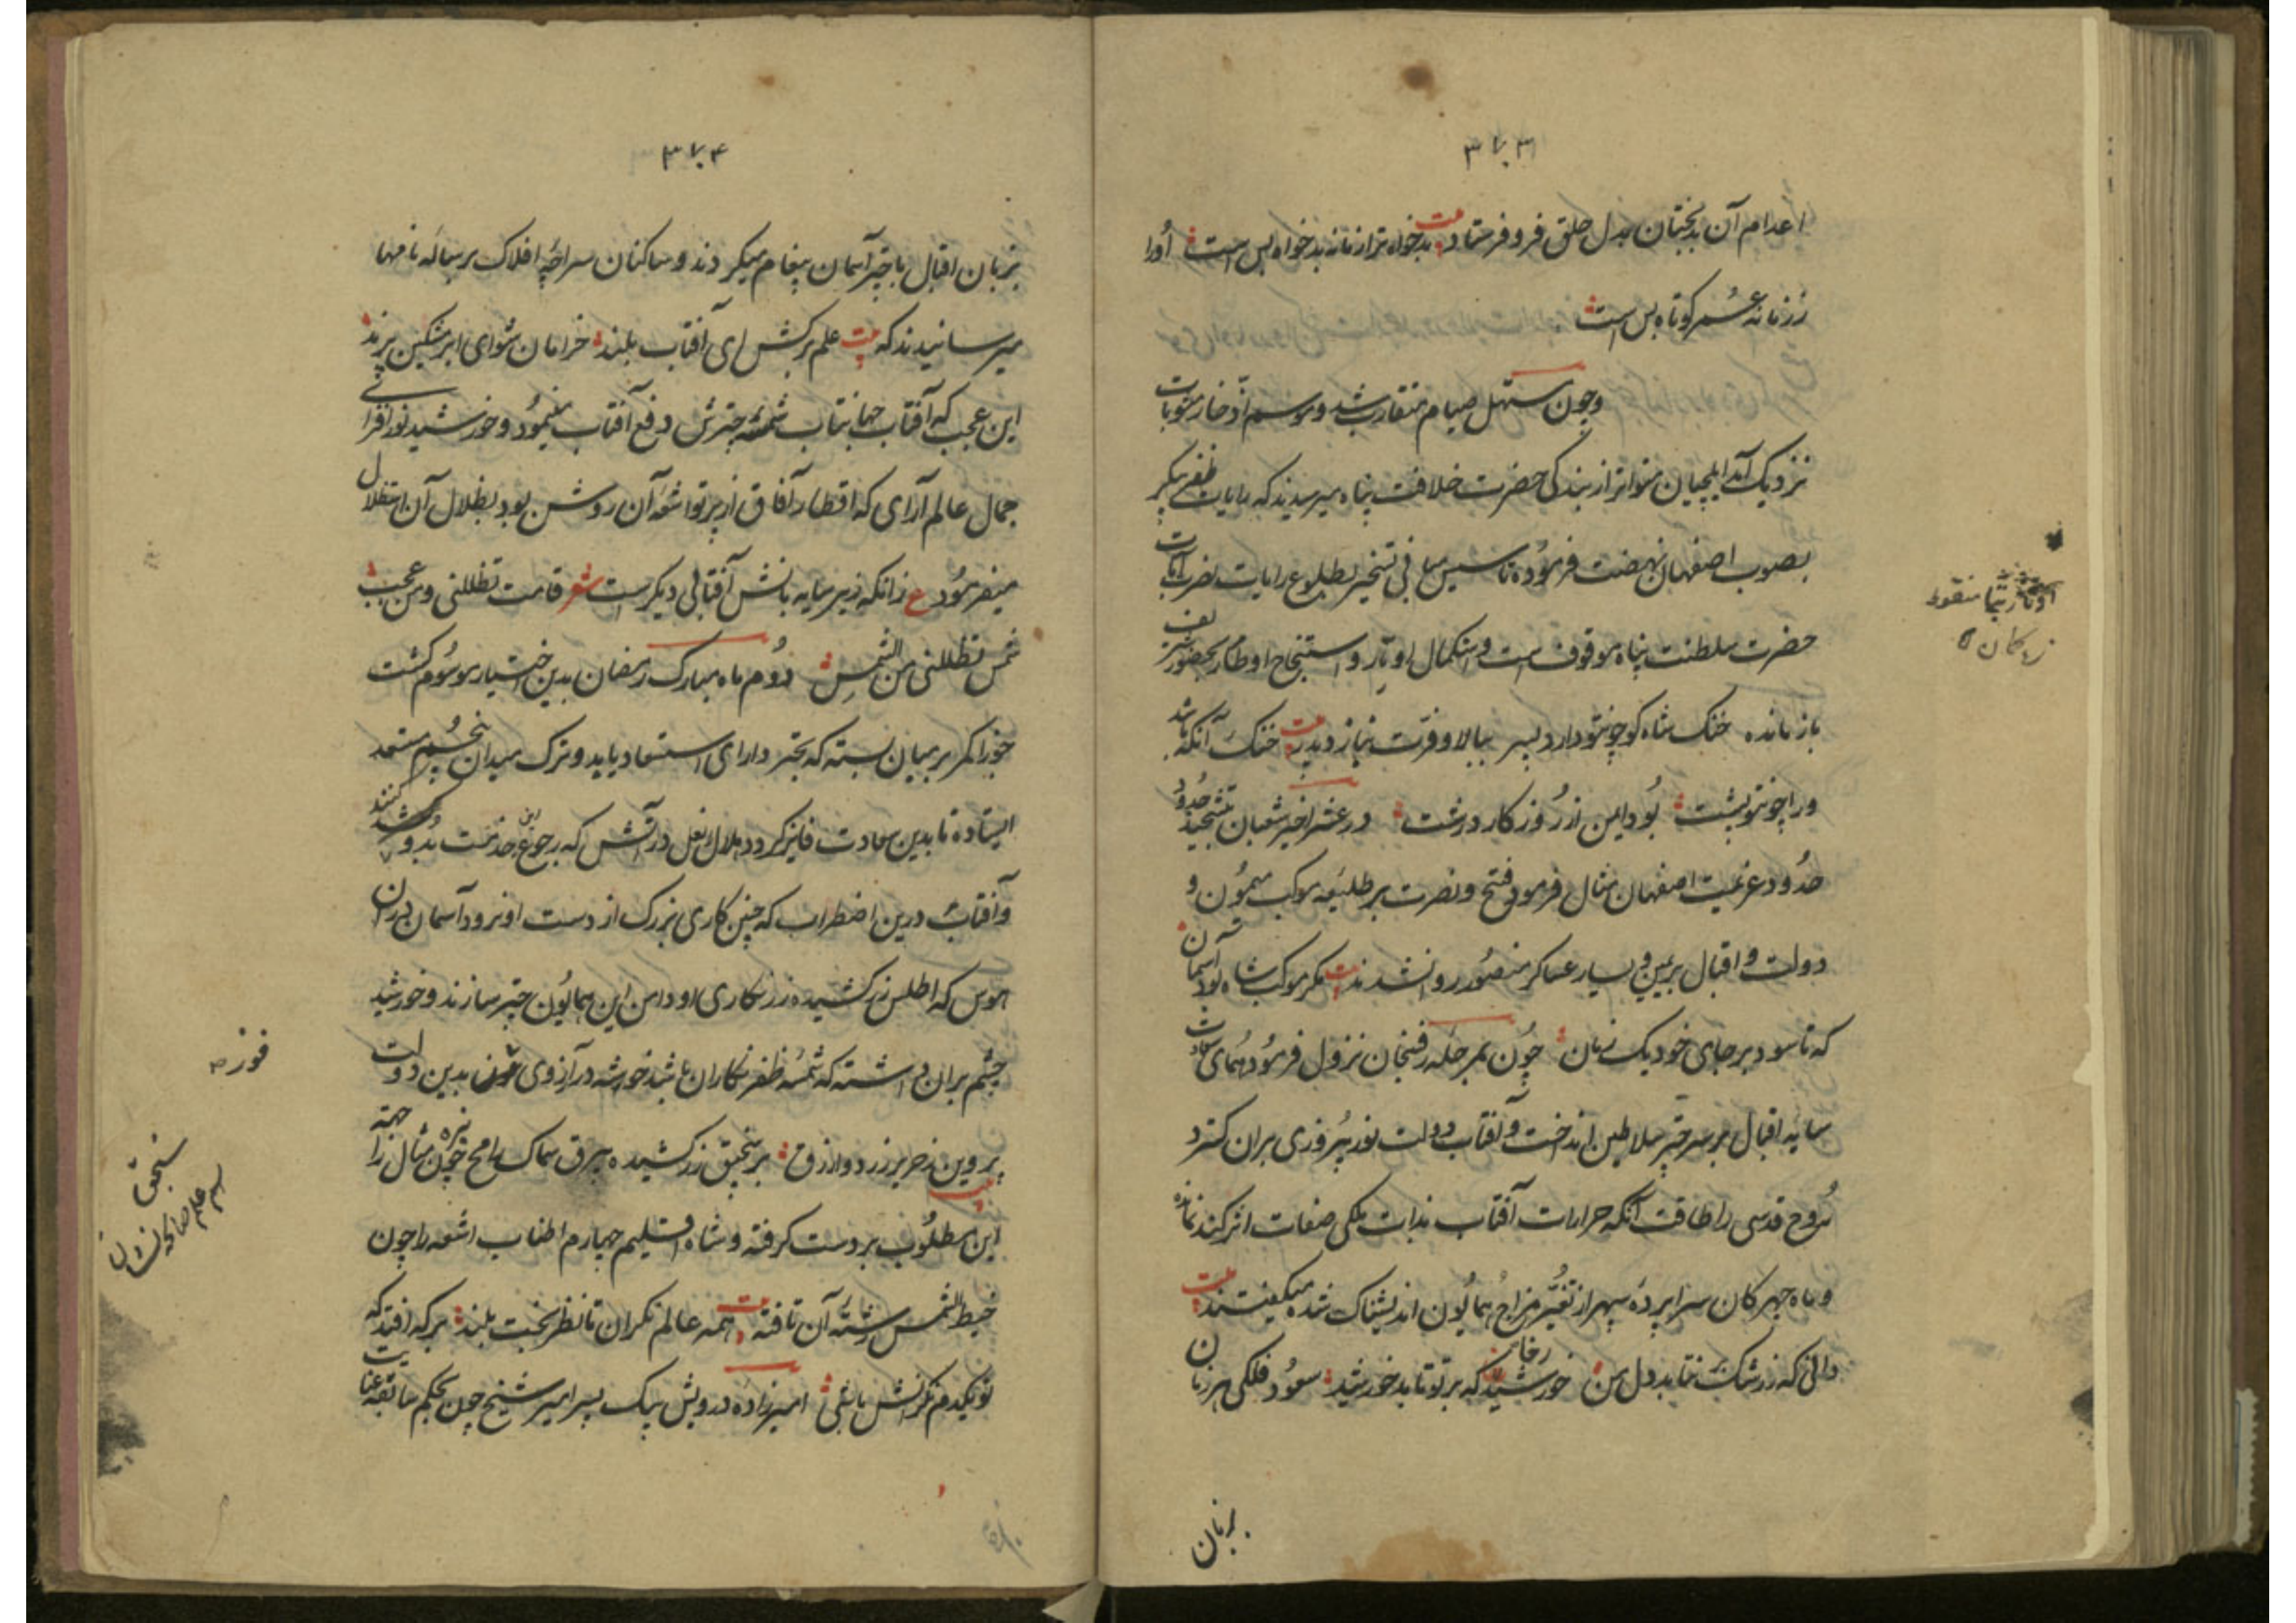 ۳۷۳
اعدام آن بدبختان بدل خلق فرو فرستاد بیت بدخواه ترا زمانه بدخواه بس است او را
ز زمانه عمر کوتاه بس است
و چون مستهل صیام متقارب شد و موسم ادخار مثوبات
نزدیک آمد ایلچیان متواتر از بندگی حضرت خلافت پناه میرسیدند که رایات ظفر پیکر
بصوب اصفهان نهضت فرموده تاسیس مبانی تسخیر بطلوع رایات نصرت آیات
حضرت سلطنت پناه موقوف است و استکمال اوتار و استنجاح اوطار بحضور شریف
باز مانده خنک شاه کو چون تو دارد پسر ببالا و فرت نیازد پدر بیت خنک آنکه باشد
ورا چون تو پشت بود ایمن از روزگار درشت در عشر اخیر شعبان تشحیذ حدود
حدود عزیمت اصفهان مثال فرمود فتح و نصرت بر طلیعه موکب میمون و
دولت و اقبال بر یمین و یسار عساکر منصور روان شدند بیت مگر موکب شاه بود آسمان
که ناسود بر جای خود یک زمان چون بمرحله رفنجان نزول فرمود همای سعادت
سایه اقبال بر سر چتر سلاطین انداخت و آفتاب دولت نور پیروزی بران گسترد
روح قدسی را طاقت آنکه حرارات آفتاب بذات ملکی صفات اثر کند نمانده
و ماه چهرکان سراپرده سپهر از تغیر مزاج همایون اندیشناک شده میگفتند بیت
دانی که ز رشک نتابد دل من خورشید که بر تو تابد خورشید سعود فلکی هر زمان
رخان
بزبان
اوتار بتا منقوط
زه کمان
۳۷۴
بزبان اقبال با چتر آسمان پیغام میکردند و ساکنان سراچه افلاک برساله نامها
میرسانیدند که بیت علم برکش ای آفتاب بلند خرامان شو ای ابر مشکین پرند
این عجب که آفتاب جهانتاب شمسه چترش دفع آفتاب مینمود و خورشید نورافزای
جمال عالم آرای که اقطار آفاق از پرتو اشعه آن روشن بود بظلال آن استظلال
میفرمود ع زانکه زیر سایه بانش آفتابی دیگرست شعر قامت تظللنی و من عجب
شمس تظللنی من الشمس دوم ماه مبارک رمضان بدین اختیار موسوم گشت
جوزا کمر بر میان بسته که بچتر دارای استسعاد یابد و ترک میدان پنجم مستعد
ایستاده تا بدین سعادت فایز گردد هلال نعل در آتش که رجوع این خدمت بدو کنند
و آفتاب درین اضطراب که چنین کاری بزرگ از دست او نرود آسمان در آن
هوس که اطلس زرکشیده زرنگاری او دامن این همایون چتر سازند و خورشید
چشم بران داشته که شمسه ظفر نگاران باشد خوشه در آرزوی بدین دولت
پروین ز حریر زرد و ازرق بر سنجق زر کشیده بیرق سماک رامح نیزه چون مثال را جهة
این مطلوب بر دست گرفته و شاه اقلیم چهارم اطناب اشعه را چون
خیط الشمس رشته آن تافته بیت همه عالم نگران تا نظر بخت بلند بر که افتد که
تو یکدم نگرانش باشی امیرزاده درویش بیک پسر امیر شیخ چون بحکم سابقه عنایت
فوز
سنجق